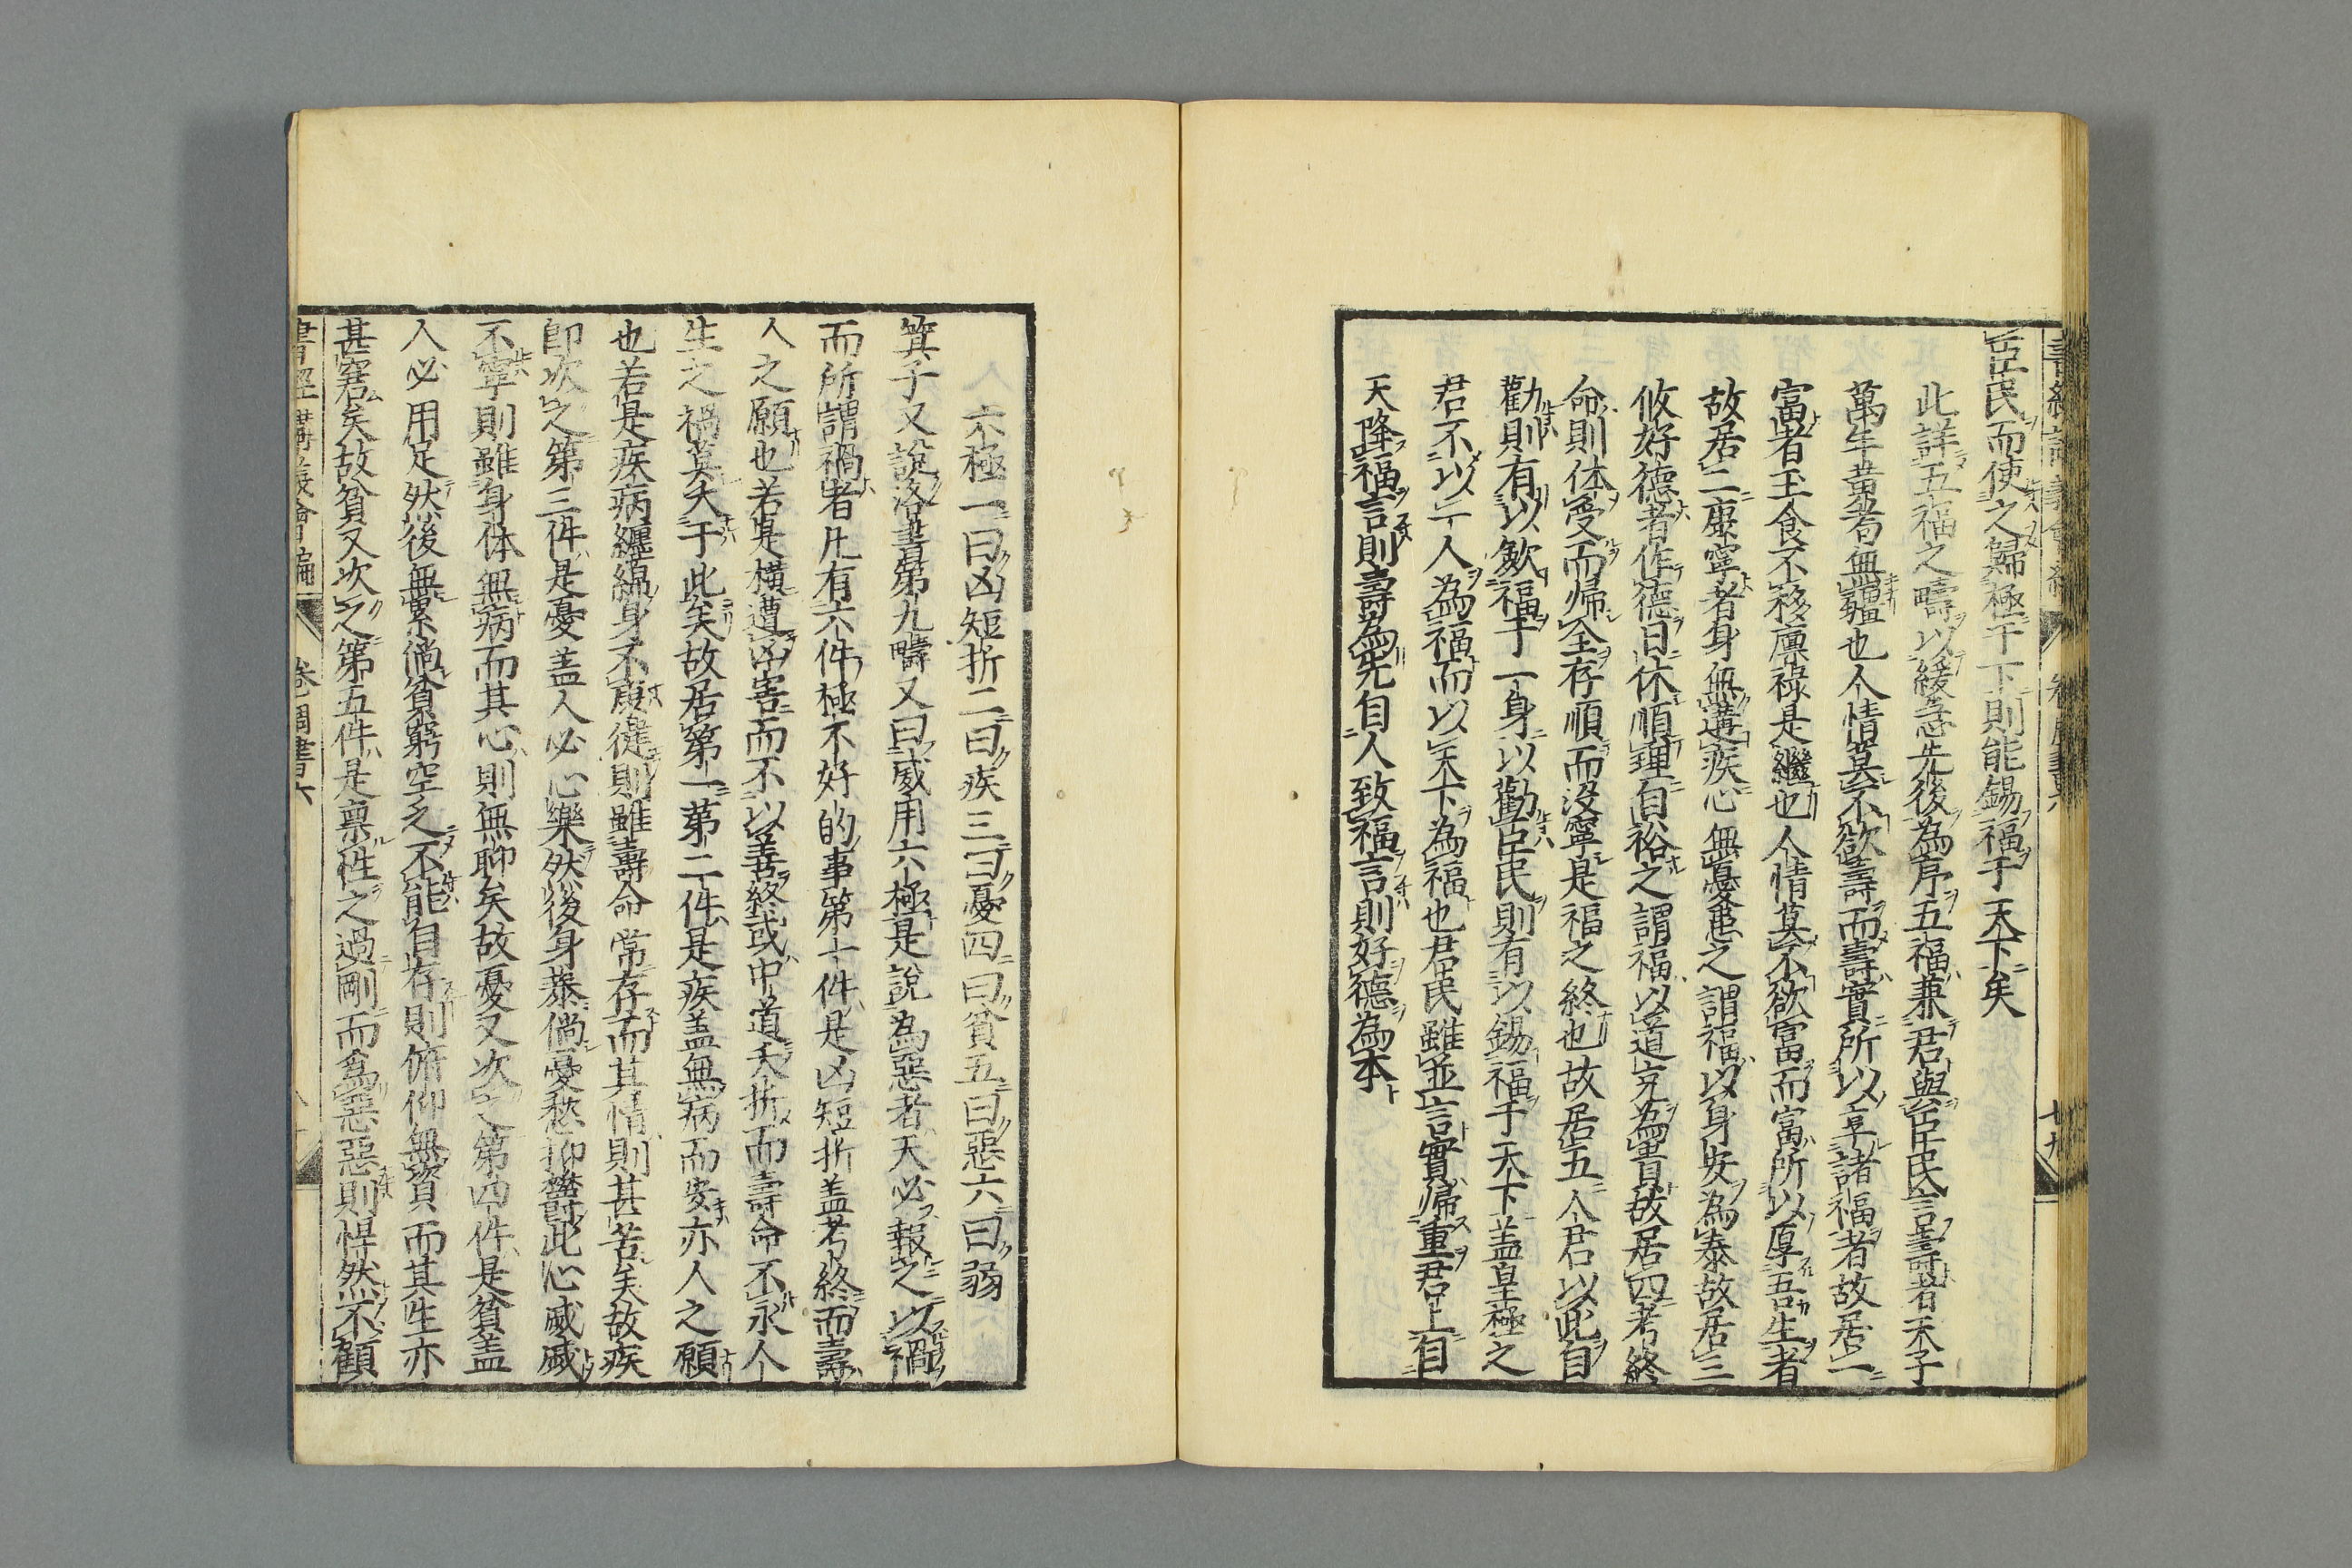 臣民而使之歸極于下則能錫福于天下矣
此詳五福之疇以緩急先後為序五福兼君與臣民言壽者天子
萬年黄耇無疆也人情莫不欲壽而壽實所以享諸福者故居一
富者玉食不移廪祿是繼也人情莫不欲富而富所以厚吾生者
故居二康寧者身無遘疾心無憂患之謂福以身安為泰故居三
攸好德者作德日休順理自裕之謂福以道充為貴故居四考終
命則体受而帰全存順而沒寧是福之終也故居五人君以此自
勸則有以歛福于一身以勸臣民則有以錫福于天下盖皇極之
君不以一人為福而以天下為福也君民雖並言實帰重君上自
天降福言則壽為先自人致福言則好德為本
六極一曰凶短折二曰疾三曰憂四曰貧五曰惡六曰弱
箕子又說洛書第九疇又曰威用六極是說為惡者天必報之以禍
而所謂禍者凡有六件極不好的事第一件是凶短折盖考終而壽
人之願也若是橫遭凶害而不以善終或中道夭折而壽命不永人
生之禍莫大于此矣故居第一第二件是疾盖無病而安亦人之願
也若是疾病纏綿身不康健則雖壽命常存而其情則甚苦矣故疾
即次之第三件是憂盖人必心樂然後身泰倘憂愁抑鬱此心戚戚
不寧則雖身体無病而其心則無聊矣故憂又次之第四件是貧盖
人必用足然後無累倘貧窮空乏不能自存則俯仰無資而其生亦
甚窘矣故貧又次之第五件是禀性之過剛而為惡惡則悍然不顧
書經講義會編 卷七周書六